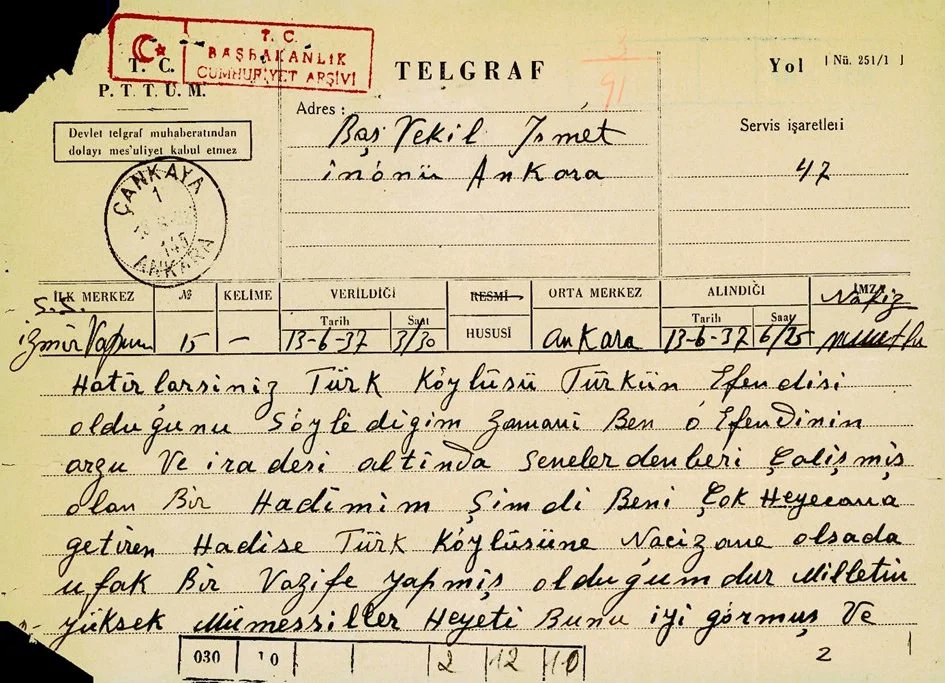 T. C.
BAŞBAKANLIK
CUMHURİYET ARŞİVİ
T. C.
P. T. T. U. M.
TELGRAF
Yol
[ Nü. 251/1 ]
91
Devlet telgraf muhaberatından
dolayı mes'uliyet kabul etmez
Adres :
Baş Vekil İsmet
İnönü Ankara
Servis işaretleri
47
ÇANKAYA
1
ANKARA
İLK MERKEZ
№
KELİME
VERİLDİĞİ
RESMİ
ORTA MERKEZ
ALINDIĞI
İMZA
Tarih
Saat
HUSUSİ
Tarih
Saat
S.S.
İzmir Vapuru
15
—
13-6-37
3/30
Ankara
13-6-37
6/25
Hatırlarsiniz Türk Köylüsü Türkün Efendisi
olduğunu Söyledigim Zamani Ben o Efendinin
arzu Ve iradesi altinda Senelerdenberi Çalişmiş
olan Bir Hadimim Şimdi Beni Çok Heyecana
getiren Hadise Türk Köylüsüne Naçizane olsada
ufak Bir Vazife yapmiş olduğumdur Milletin
yüksek Mümessiller Heyeti Bunu iyi görmuş Ve
030
10
2
12
10
2